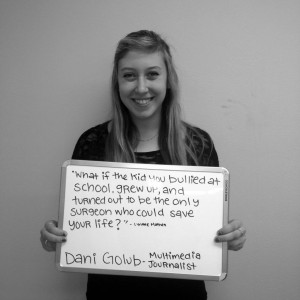 "What if the kid you bullied at
school, grew up, and
turned out to be the only
surgeon who could save
your life?" -
Dani Golub - Multimedia
Journalist